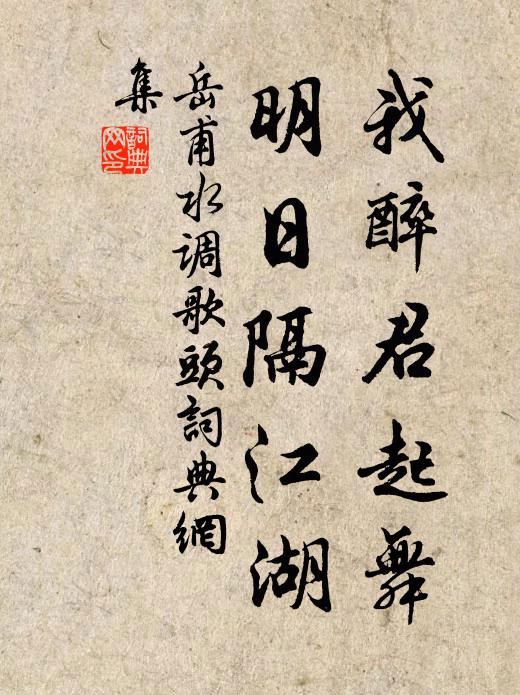 我醉君起舞
明日隔江湖
岳甫水調歌頭詞典網
集
詞典
网印